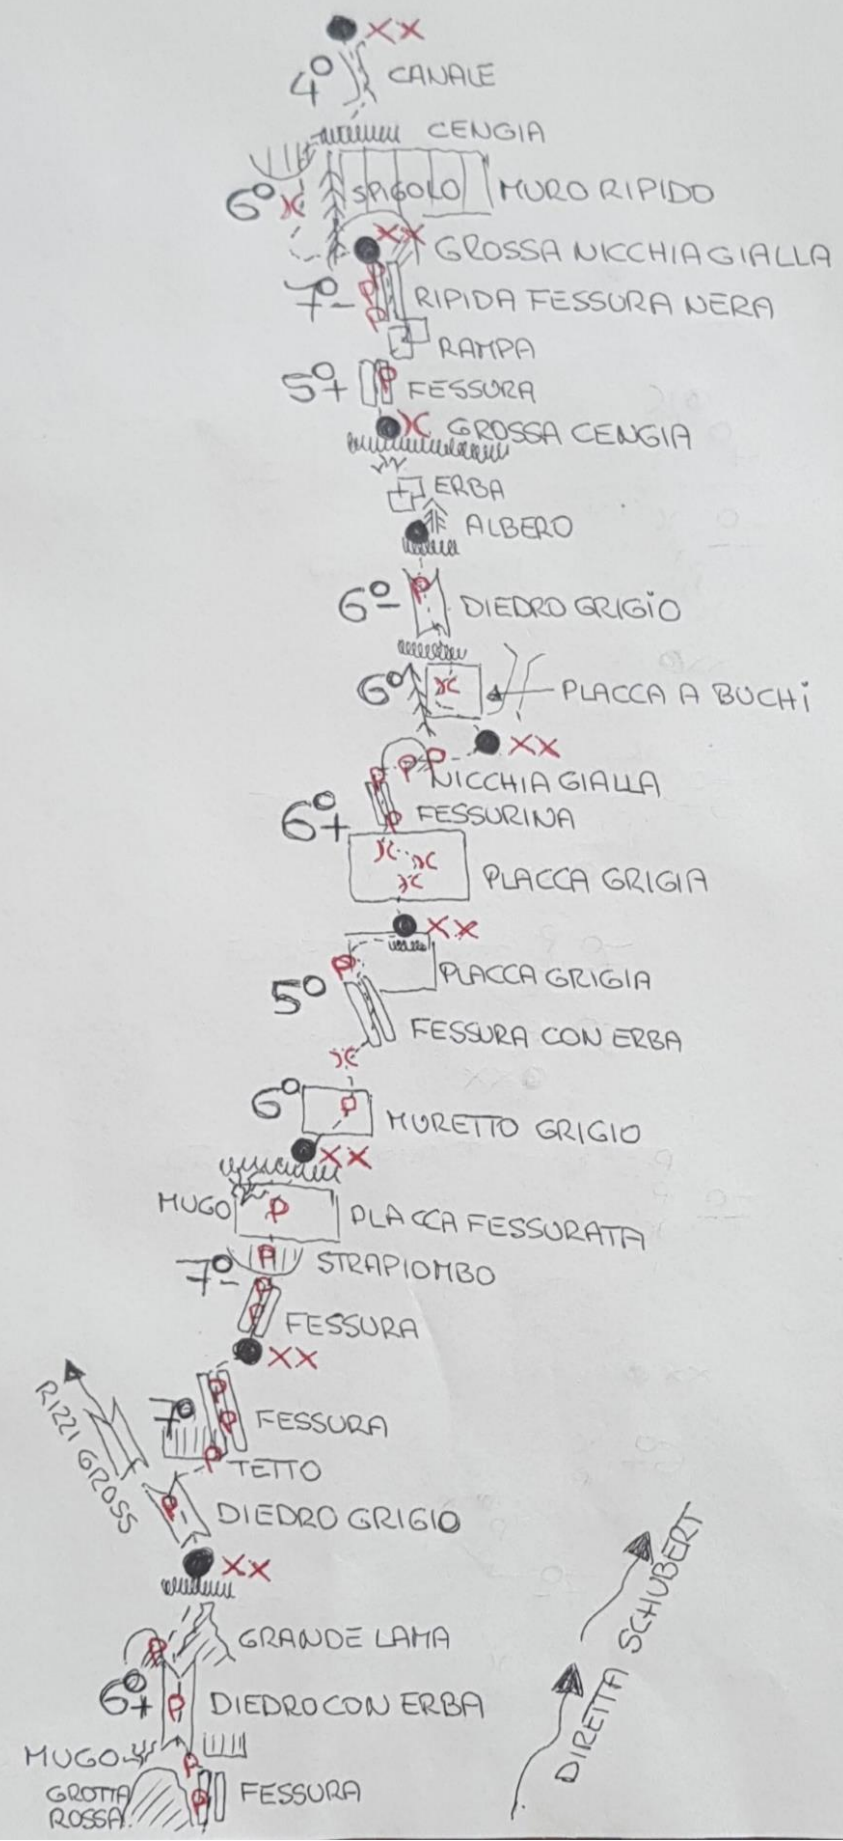 XX
4° CANALE
CENGIA
6° SPIGOLO MURO RIPIDO
XX
GROSSA NICCHIA GIALLA
7°- RIPIDA FESSURA NERA
RAMPA
5°+ FESSURA
GROSSA CENGIA
ERBA
ALBERO
6°- DIEDRO GRIGIO
6° PLACCA A BUCHI
XX
NICCHIA GIALLA
6°+ FESSURINA
PLACCA GRIGIA
XX
PLACCA GRIGIA
5°
FESSURA CON ERBA
6° MURETTO GRIGIO
XX
MUGO PLACCA FESSURATA
7°- STRAPIOMBO
FESSURA
XX
RIZZI GROSS
7° FESSURA
TETTO
DIEDRO GRIGIO
XX
GRANDE LAMA
6°+ DIEDRO CON ERBA
MUGO
GROTTA
ROSSA
FESSURA
DIRETTA SCHUBERT